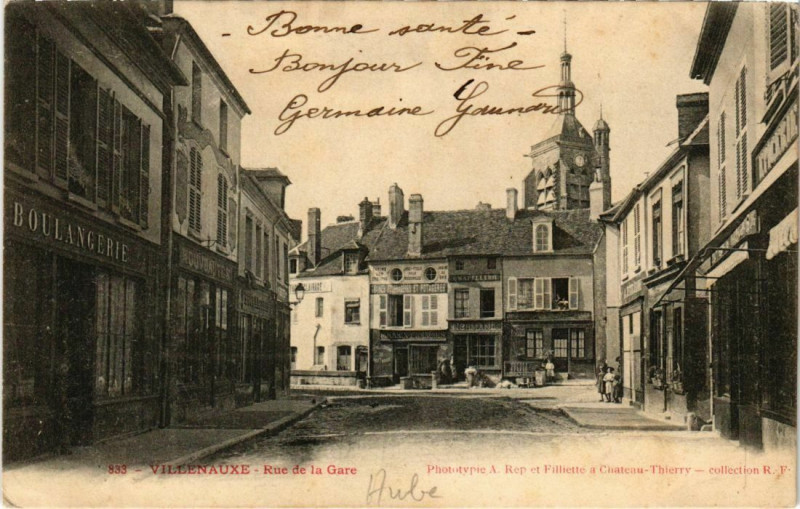 - Bonne santé -
Bonjour Fine
Germaine Gaunard
BOULANGERIE
833 - VILLENAUXE - Rue de la Gare
Phototypie A. Rep et Filliette a Chateau-Thierry - collection R. F.
Aube